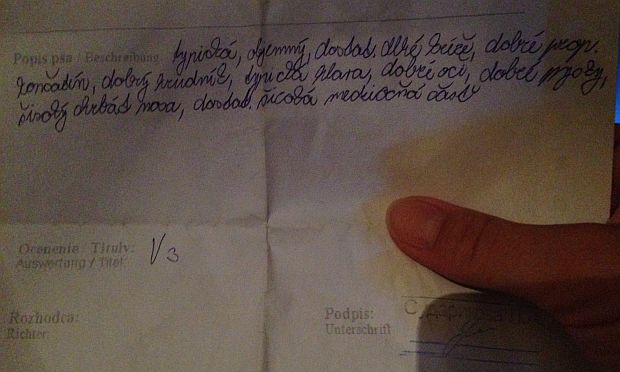 Popis psa / Beschreibung typická, objemný, dostat. dlhé kríže, dobré prop.
končatín, dobrý hrudník, typická hlava, dobré oči, dobré
široký chrbát nosa, dostat. široká medziočná časť
Ocenenie / Tituly: V3
Auswertung / Titel:
Rozhodca: Podpis:
Richter: Unterschrift